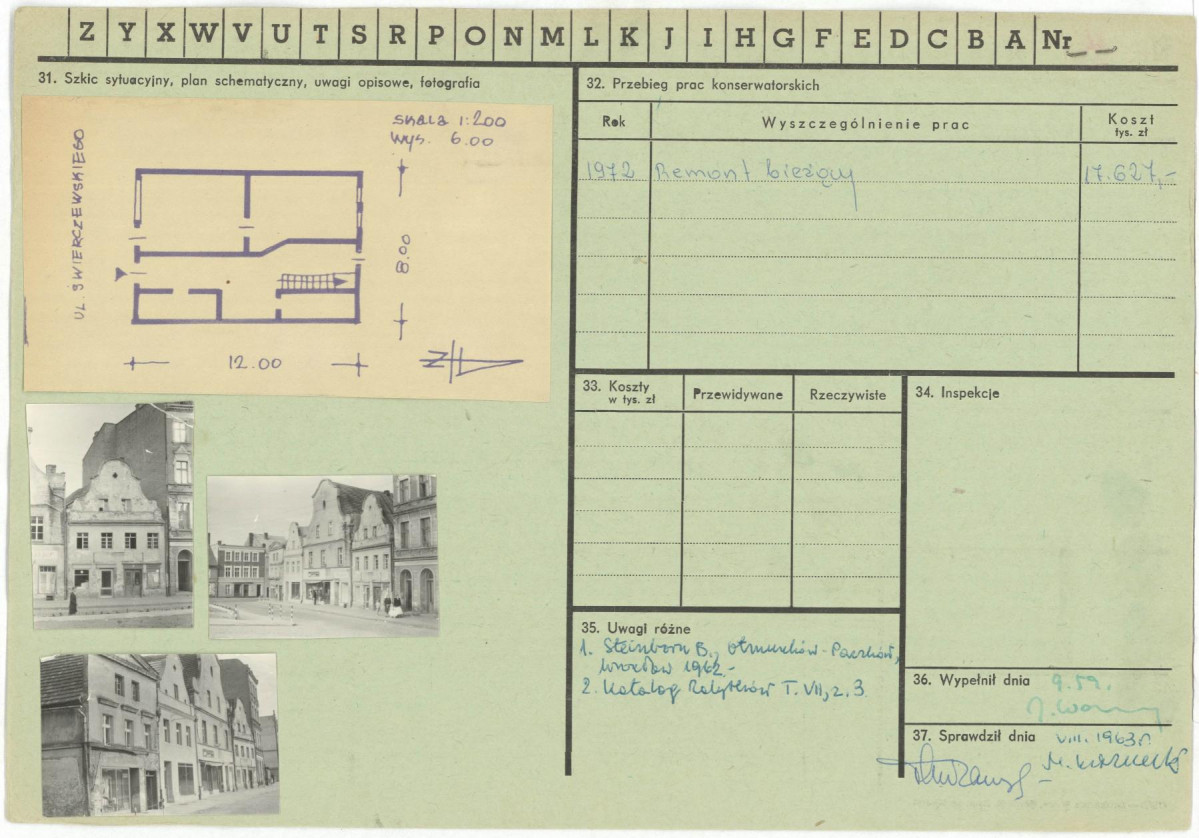 Z Y X W V U T S R P O N M L K J I H G F E D C B A Nr
31. Szkic sytuacyjny, plan schematyczny, uwagi opisowe, fotografia
UL ŚWIERCZEWSKIEGO
skala 1:200
wys. 6.00
8.00
12.00
32. Przebieg prac konserwatorskich
Rok
Wyszczególnienie prac
Koszt
tys. zł
1972 Remont bieżący 17.627,-
33. Koszty
w tys. zł
Przewidywane
Rzeczywiste
34. Inspekcje
35. Uwagi różne
1. Steinborn B., Otmuchów-Paczków,
Wrocław 1962-
2. Katalog Zabytków T. VII, z. 3
36. Wypełnił dnia 9.59.
37. Sprawdził dnia VIII. 1963 r